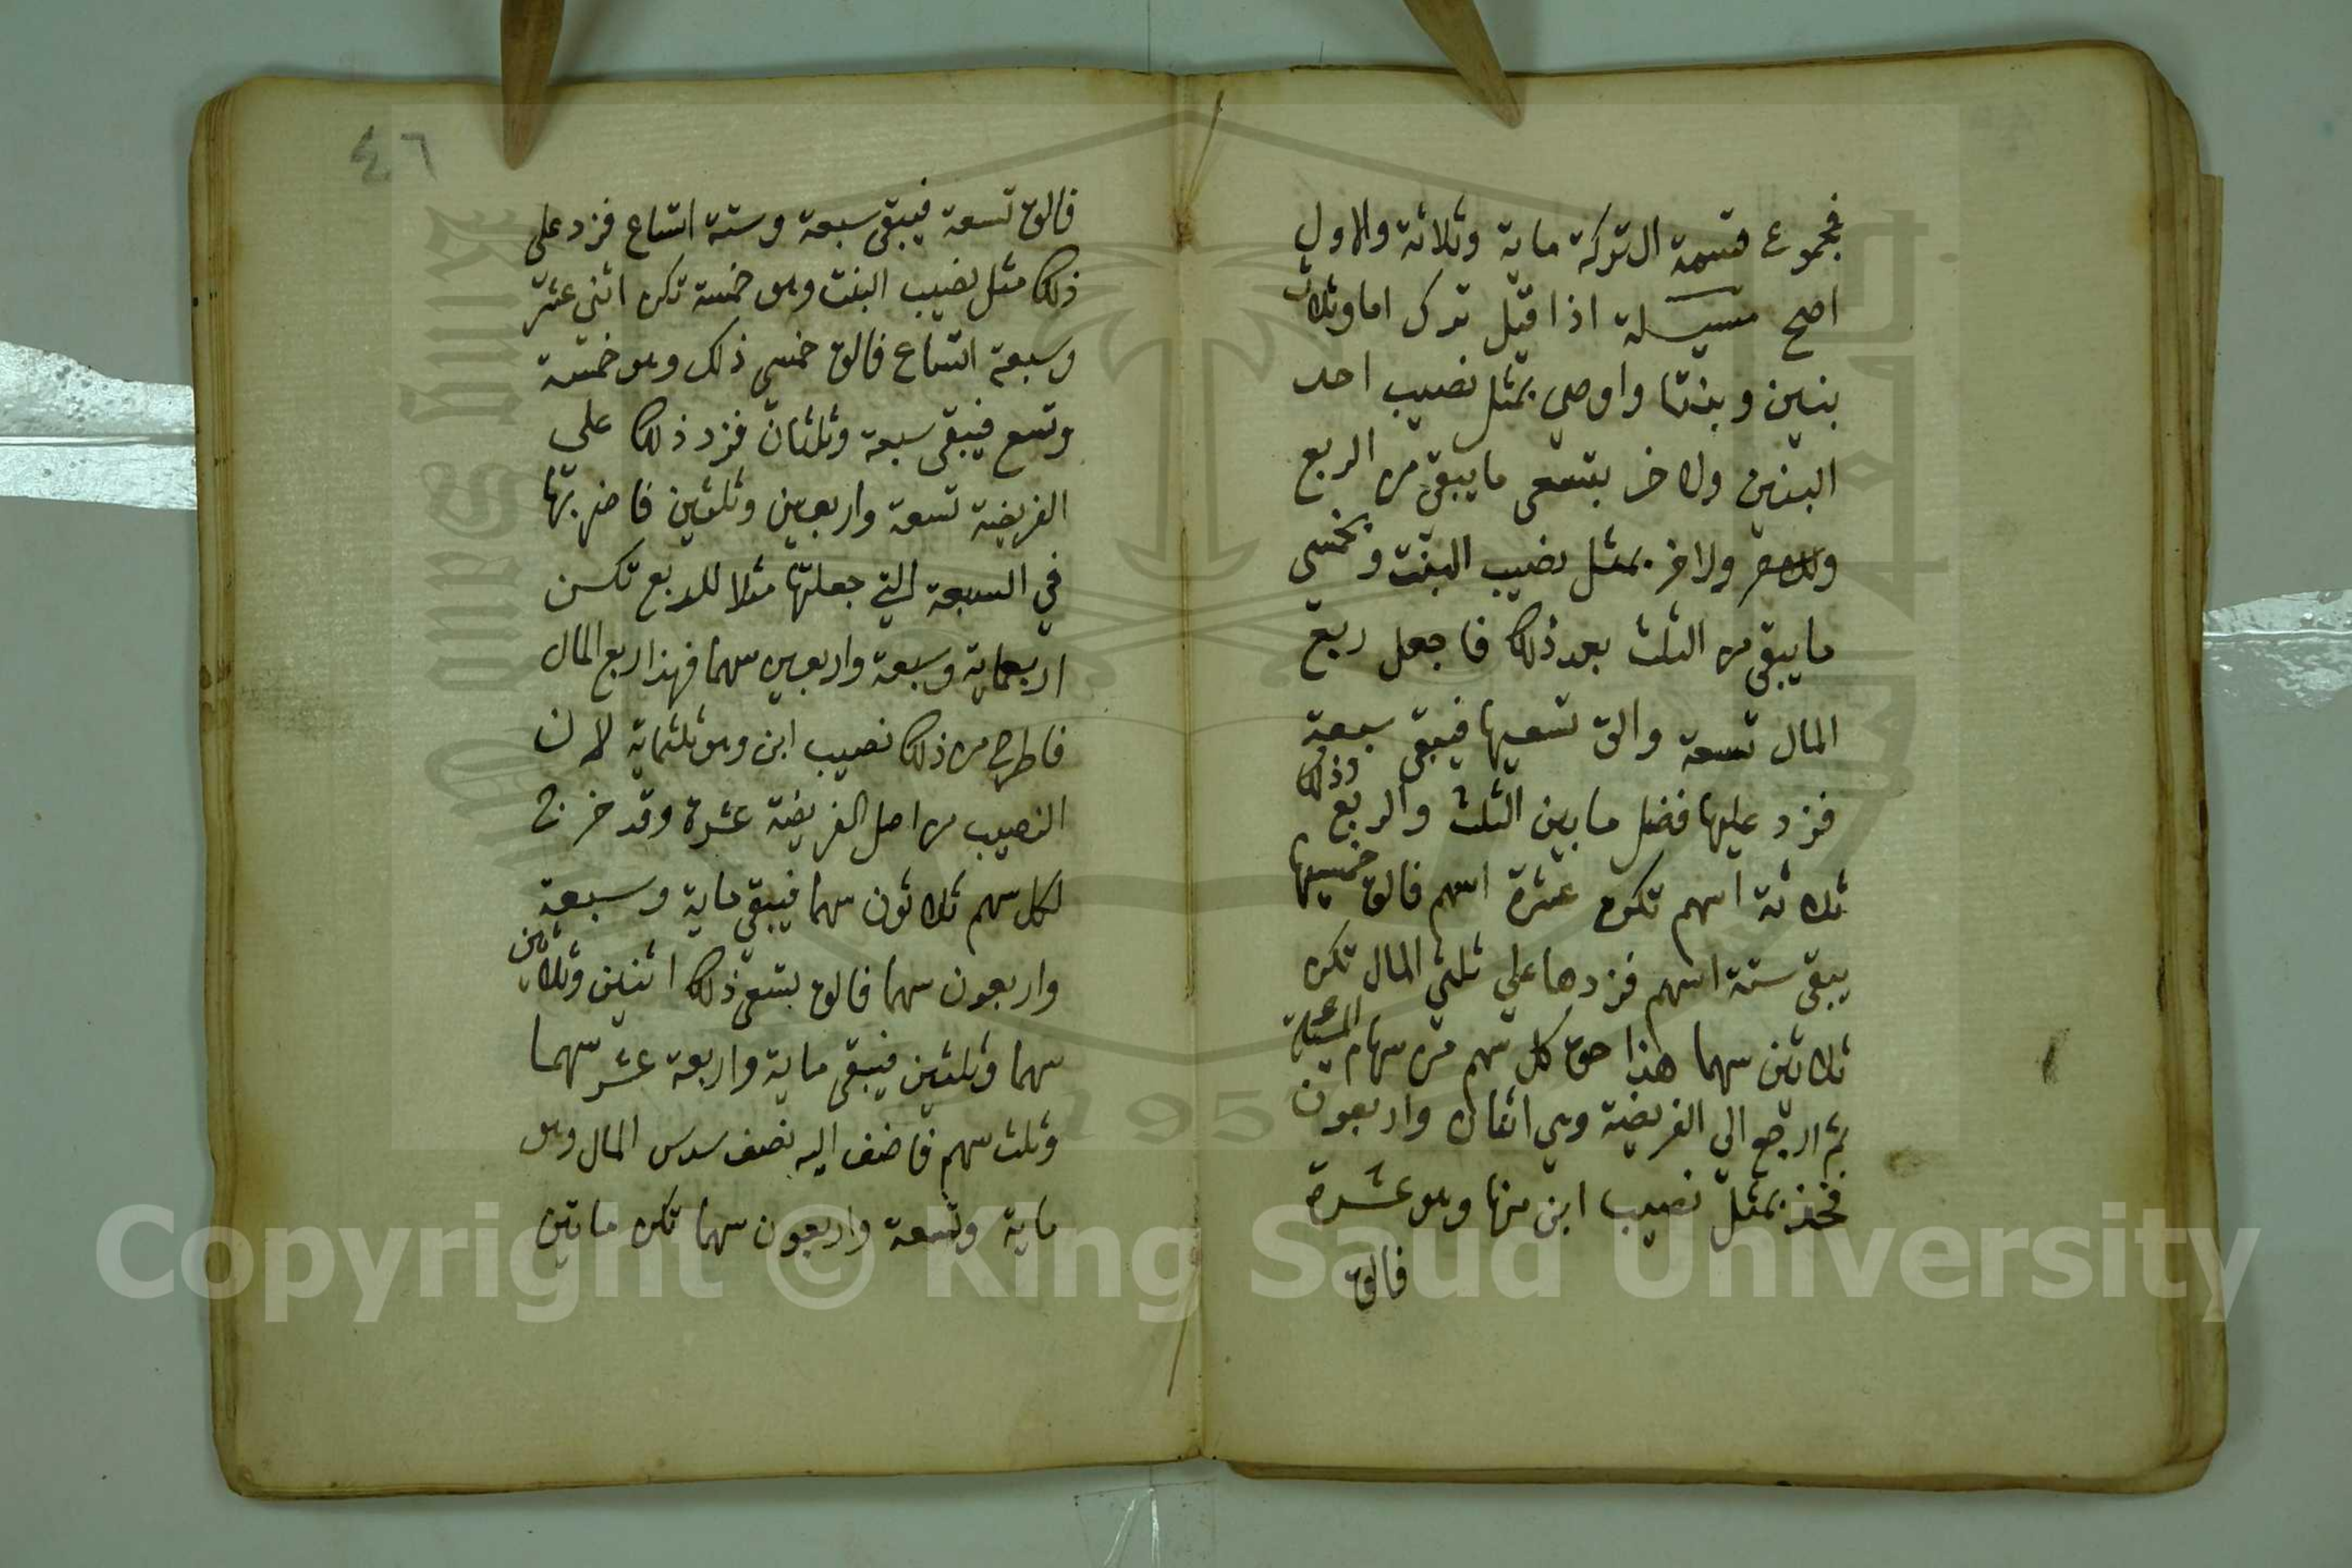 فمجموع قسمة التركة ماية وثلاثة والاول
اصح مسيلة اذا قيل ترك اما وثلاث
بنين وبنتا واوصي بمثل نصيب احد
البنين ولاخر بتسعى ما يبقى من الربع
ولاخر بمثل نصيب البنت وبخمسي
ما يبقى من الثلث بعد ذلك فاجعل ربع
المال تسعة والق تسعيها فيبقى سبعة
فزد عليها فضل ما بين الثلث والربع وذلك
ثلاثة اسهم تكون عشرة اسهم فالق خمسيها
يبقى ستة اسهم فزدها علي ثلثي المال تكن
ثلاثين سهما هذا حق كل سهم من سهام المسئلة
ثم ارجع الي الفريضة وهي اثنان واربعون
فخذ بمثل نصيب ابن منها وهو عشرة
فالق
٤٦
فالق تسعة فيبقى سبعة وستة اتساع فزد على
ذلك مثل نصيب البنت وهو خمسة تكن اثني عشر
وسبعة اتساع فالق خمسي ذلك وهو خمسة
وتسع فيبقى سبعة وثلثان فزد ذلك علي
الفريضة تسعة واربعين وثلثين فاضربها
في السبعة التي جعلتها مثلا للربع تكن
اربعماية وسبعة واربعين سهما فهذا ربع المال
فاطرح من ذلك نصيب ابن وهو ثلثماية لان
النصيب من اصل الفريضة عشرة وقد خرج
لكل سهم ثلاثون سهما فيبقى ماية وسبعة
واربعون سهما فالق بتسعى ذلك اثنين وثلاثين
سهما وثلثين فيبقى ماية واربعة عشر سهما
وثلث سهم فاضف اليه نصف سدس المال وهو
ماية وتسعة واربعون سهما تكن ماتين
Copyright © King Saud University